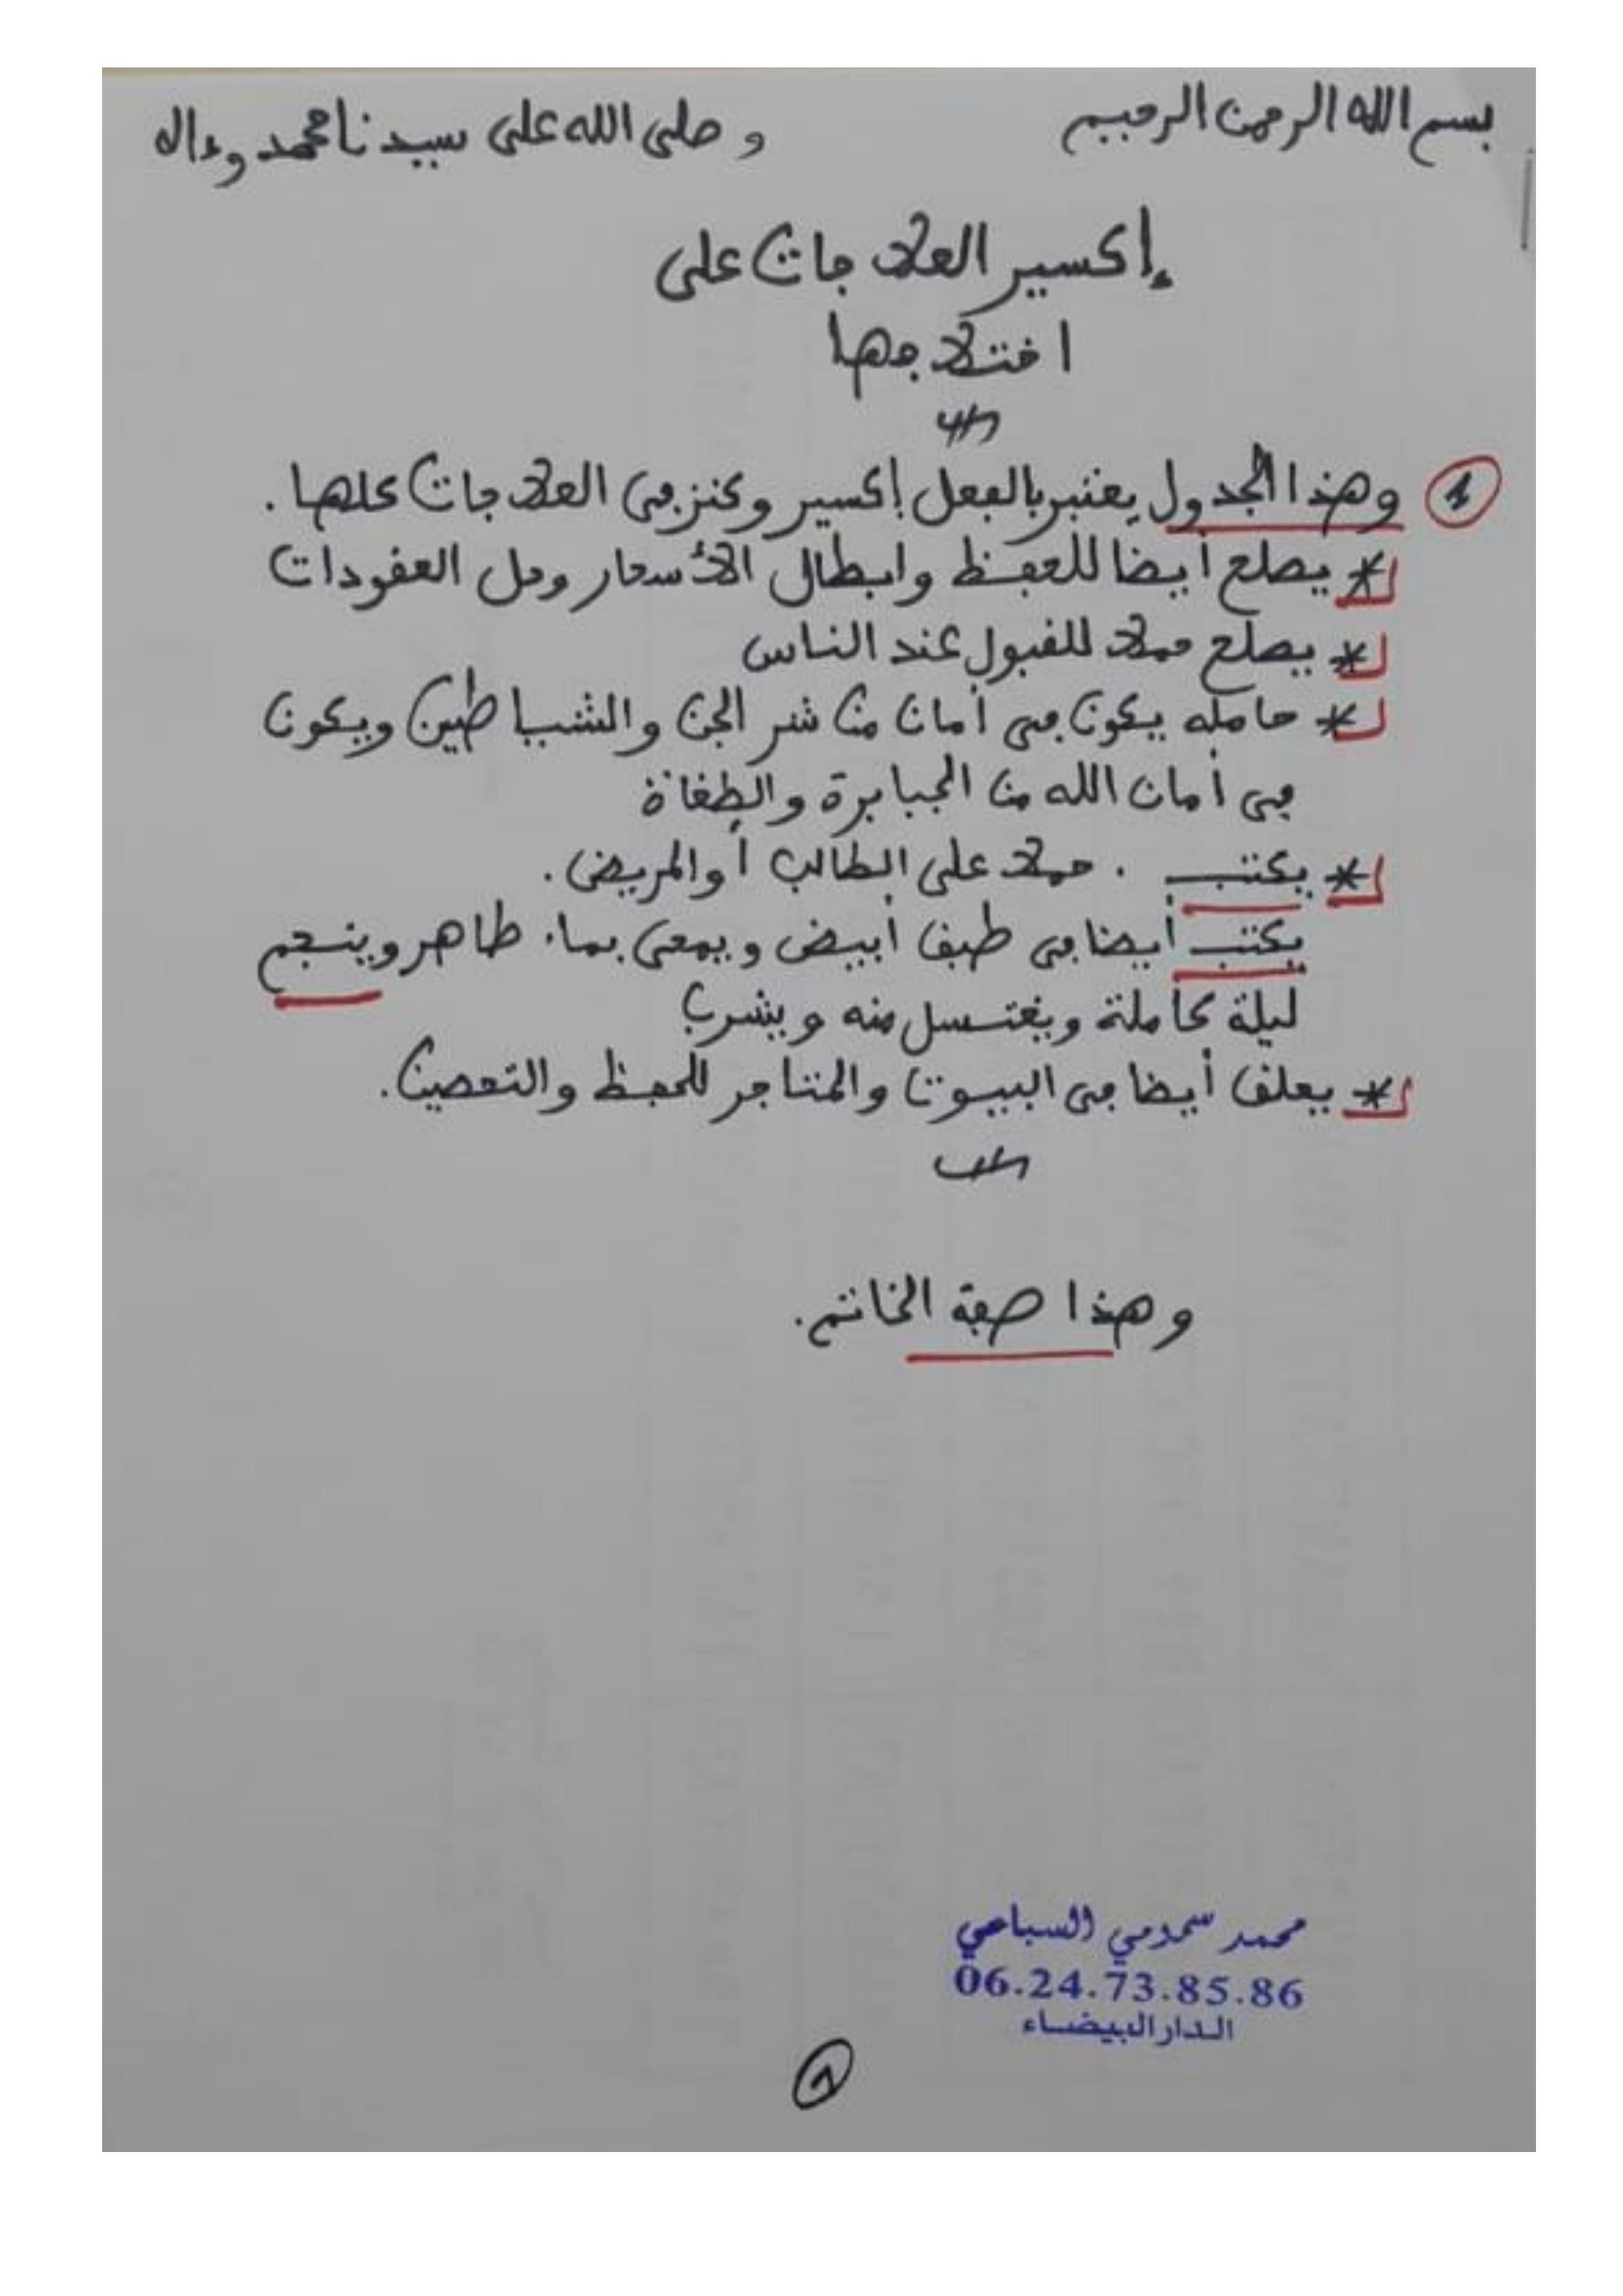 بسم الله الرحمن الرحيم وصلى الله على سيدنا محمد وءاله
إكسير العلاجات على
اختلافها
① وهذا الجدول يعتبر بالفعل إكسير وكنز في العلاجات كلها.
* يصلح أيضا للحفظ وابطال الأسحار وحل العقودات
* يصلح حملا للقبول عند الناس
* حامله يكون في أمان من شر الجن والشياطين ويكون
في أمان الله من الجبابرة والطغاة
* يكتب . حملا على الطالب أو المريض.
يكتب أيضا في طبق أبيض ويمحى بماء طاهر وينجم
ليلة كاملة ويغتسل منه ويشرب
* يعلق أيضا في البيوت والمتاجر للحفظ والتحصين.
وهذا صفة الخاتم.
محمد سمومي السباعي
06.24.73.85.86
الدار البيضاء